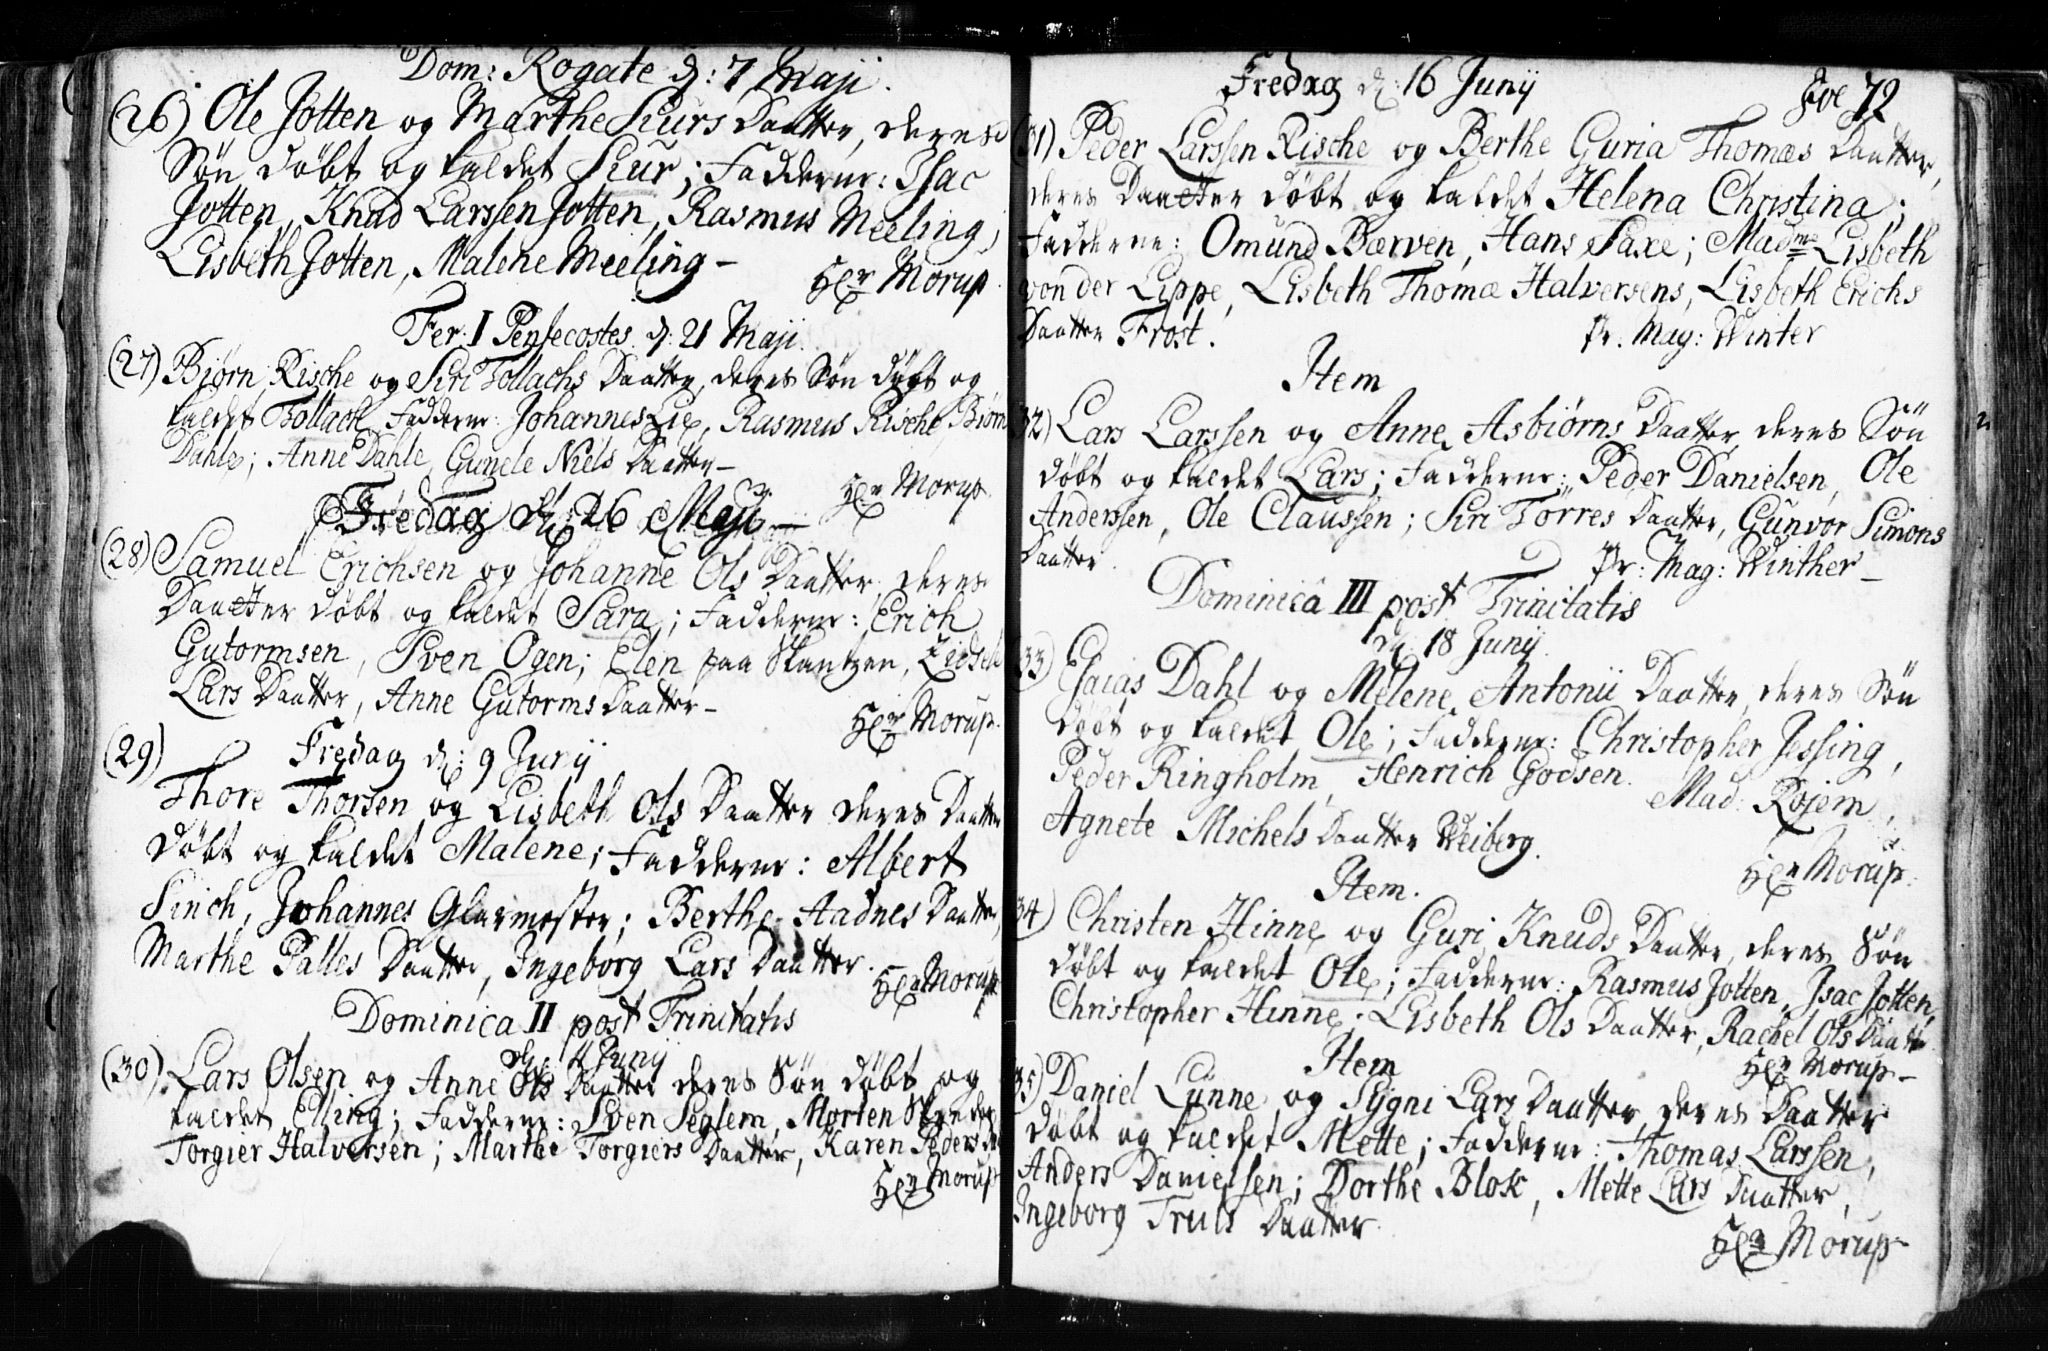 Dom: Rogate d: 7 Maji.
(26) Ole Jotten og Marthe Siurs Daatter, deres
Søn døbt og kaldet Siur; Fadderne: Isac
Jotten, Knud Larssen Jotten, Rasmus Meeling;
Lisbeth Jotten, Malene Meeling –
Hr Morup.
Fer. I Pentecostes. d. 21 Maji.
(27) Biørn Rische og Siri Tollachs Daatter, deres Søn døbt og
kaldet Tollack, Fadderne: Johannes Lie, Rasmus Rische Biørn
Dahle; Anne Dahle, Gunele Niels Daatter –
Hr Morup.
Fredag d: 26 Maji –
(28) Samuel Erichsen og Johanne Ols Daatter, deres
Daatter døbt og kaldet Sara; Fadderne: Erich
Gutormsen, Sven Ogen; Elen paa Skantzen,
Lars Daatter, Anne Gutorms Daatter –
Hr Morup.
(29) Fredag d: 9 Junij
Thore Thorsen og Lisbeth Ols Daatter deres Daatter
døbt og kaldet Malene; Fadderne: Albert
Sinch, Johannes Glarmester; Berthe Aadnes Daatter,
Marthe Palles Daatter, Ingeborg Lars Daatter.
Hr Morup
Dominica II post Trinitatis
d: Junij
(30) Lars Olsen og Anne Ols Daatter deres Søn døbt og
kaldet Elling; Fadderne: Sven Seglem, Morten
Torgier Halversen; Marthe Torgiers Daatter, Karen Peders
Hr Morup
Fredag d: 16 Junij
72
31) Peder Larssen Rische og Berthe Guria Thomæs Daatter,
deres Daatter døbt og kaldet Helena Christina;
Fadderne: Omund Bærven, Hans Saxe; Madme Lisbeth
von der Lippe, Lisbeth Thomæ Halversens, Lisbeth Erichs
Daatter Frost.
Pr. Mag: Winter
Item
32) Lars Larssen og Anne Asbiørns Daatter, deres Søn
døbt og kaldet Lars; Fadderne: Peder Danielsen, Ole
Anderssen, Ole Claussen; Siri Törres Daatter, Gunvor Simons
Daatter.
Pr: Mag: Winther –
Dominica III post Trinitatis
d. 18 Junij.
33) Esaias Dahl og Melene Antonii Daatter, deres Søn
døbt og kaldet Ole; Fadderne: Christopher Jessing,
Peder Ringholm, Henrich Godsen. Mad: Rojem,
Agnete Michels Daatter Weiberg.
Hr Morup.
Item.
34) Christen Hinne og Guri Knuds Daatter, deres Søn
døbt og kaldet Ole; Fadderne: Rasmus Jotten, Isac Jotten,
Christopher Hinne; Lisbeth Ols Daatter, Rachel Ols Daatter
Hr Morup –
Item
35) Daniel Lunne og Signi Lars Daatter, deres Daatter
døbt og kaldet Mette; Fadderne: Thomas Larssen,
Anders Danielsen; Dorthe Blok, Mette Lars Daatter,
Ingeborg Truls Daatter.
Hr Morup